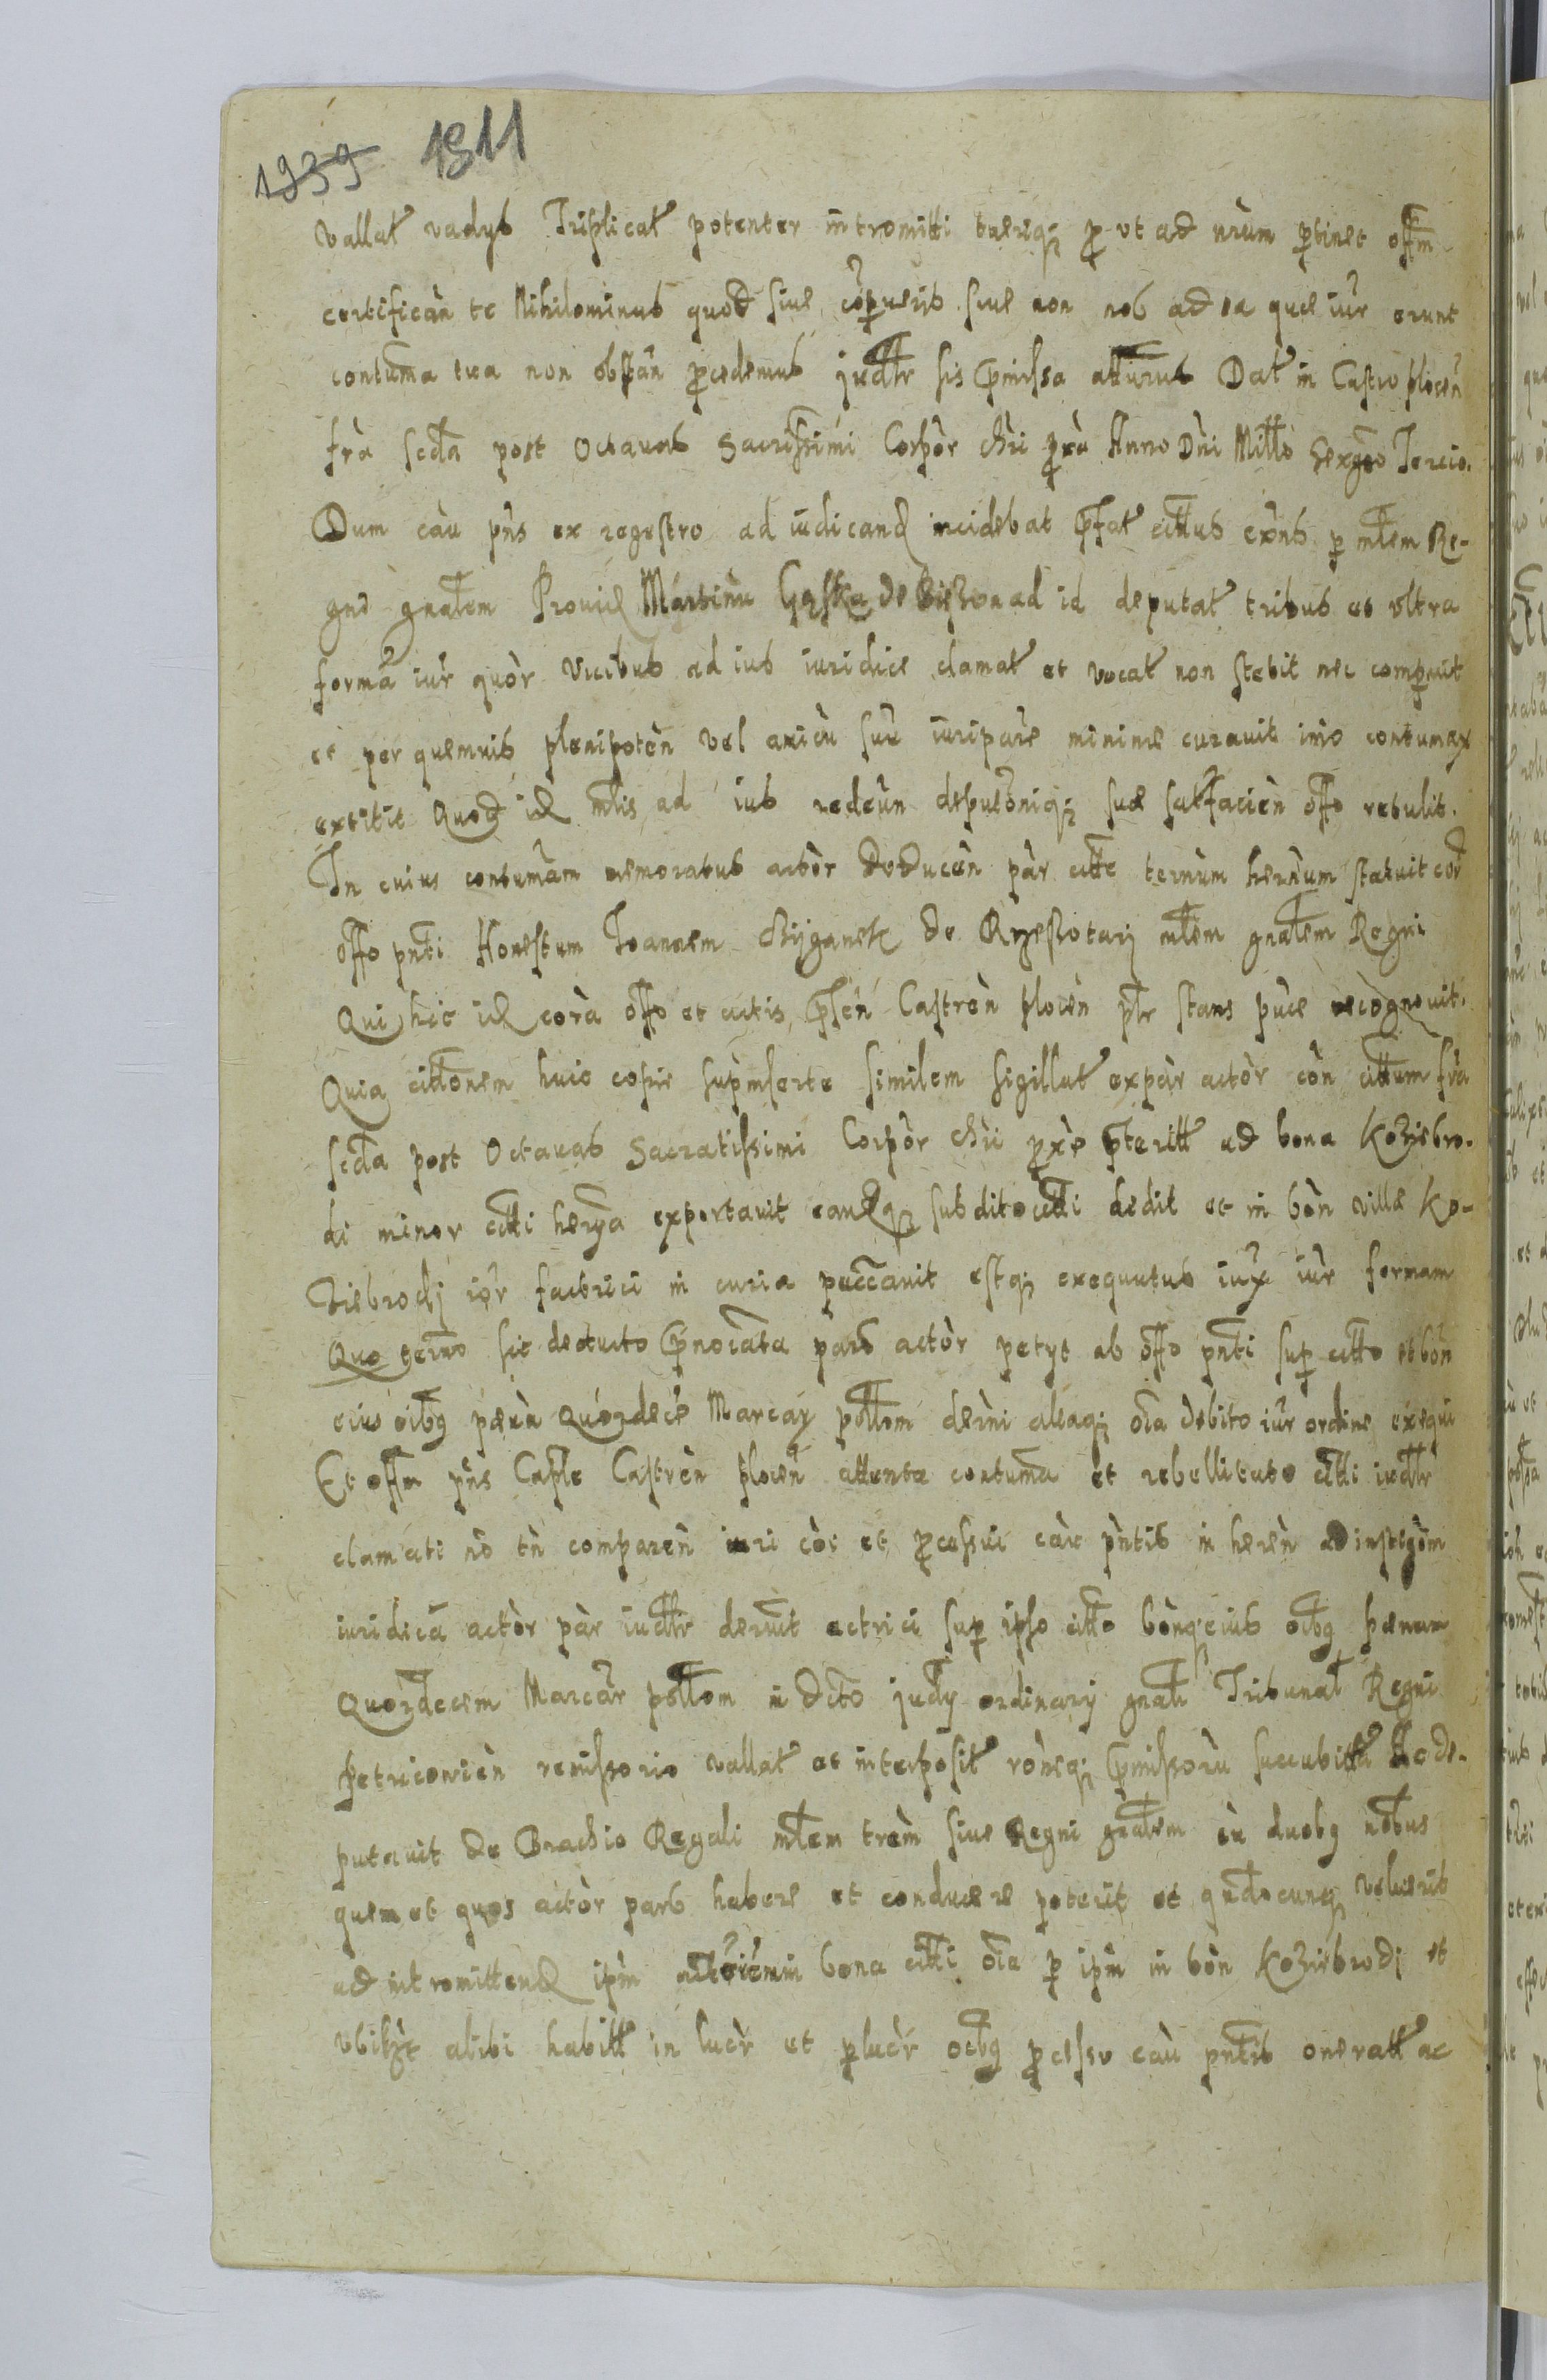 1939 1911
vallat vadys Triplicat potenter intromitti tuerique pro ut ad nrum pertinet offm
certifican te Nihilominus quod siue comperueris siue non nos ad ea que iur erunt
contuma tua non obstan procedemus judltr sis premissa atturus Dat in Castro plocen
fra scda post Octauas Sacrissimi Corpor chri prxa Anno Dni Millo Sexgeo Tercio.
Dum cau pns ex regestro ad iudicand incidebat prefat cittus exns per mlem Re-
gni gnalem Prouid Martinu Gąska de ad id deputat tribus et vltra
forma iur quor vicibus ad ius iuridice clamat et vocat non stetit nec comperuit
et per quemuis plenipoten vel amicu suu iuripare minime curauit imo contumax
extitit Quod id mlis ad ius redeun deputoniq sue satfacien offo retulit.
In cuius contumam memoratus actor Deducen par citte ternum hernum statuit cor
offo pnti Honestum Joannem de mlem gnalem Regni
Qui hic id cora offo et actis presen Castren plocen pltr stans puce recognouit.
Quia cittonem huic copie supinserte similem sigillat expar actor con cittum fra
scda post Octauas Sacratissimi Corpor chri prxe preteritt ad bona Koziebro-
di minor citti herna exportauit eandq subdito citti dedit et in bon ville Ko-
ziebrodj ior factrici in curia peccauit estq exequutus iux iur formam
Quo termo sic deducto prenocata pars actor petyt ab offo pnti sup citto et bon
eius oibq pæna Quordece Marcar pollom derni aliaq oia debito iur ordine exequi
Et offm pns Caple Castren plocen attenta contuma et rebellitate citti iudltr
clamati no tn comparen iuri coi et processui cau pntis in heren ad instigom
iuridica actor par iudltr deruit actrici sup ipso citto bonq eius oibq pænam
Quordecem Marcar pollom in Dicto judy ordinarij gnali Tribunal Regni
petricouien remissorio vallat et interposit roneq premissoru succubitta Ac de-
putauit de Brachio Regali mlem trem siue Regni gnalem cu duobq nobus
quem et quos actor pars habere et conducere poterit et qndocunq voluerit
ad intromittend ipm in bona citti oia per ipm in bon Koziebrodj et
vbilzt alibi habitt in lucr et perlucr oibq processu cau pntis oneratt ac